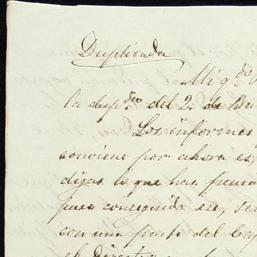 Duplicada
Mi q.do
la disp.on del 2.
Los informes
conviene por ahora es
digas lo que has
pues conseguido eso, se
con una parte del
el Director